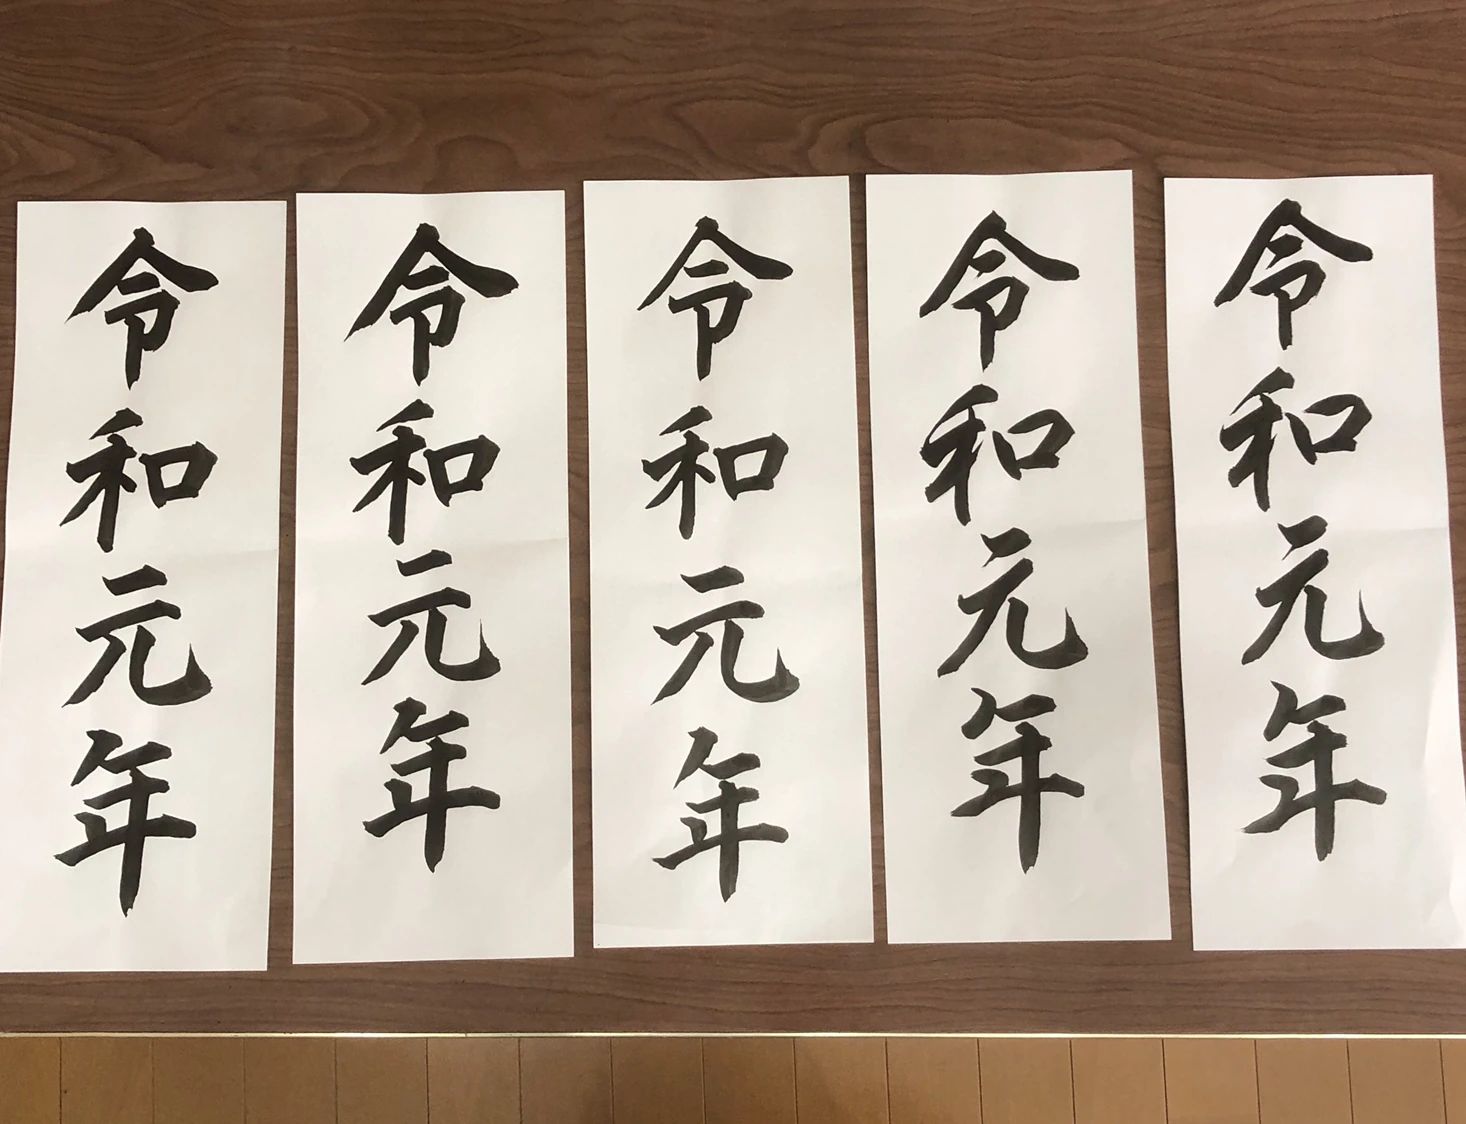 令和元年
令和元年
令和元年
令和元年
令和元年